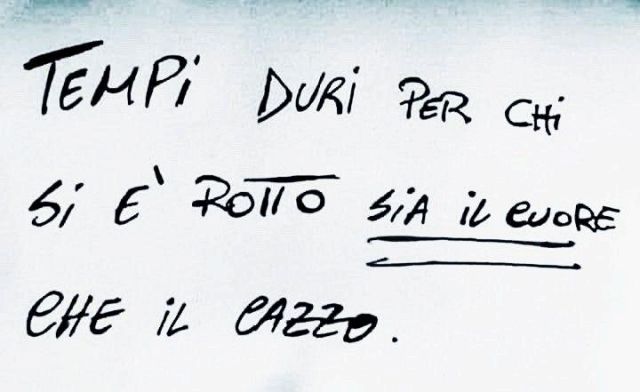 TEMPi DURi PER CHi
Si E' ROTTO SiA iL CUORE
CHE iL CAZZO.